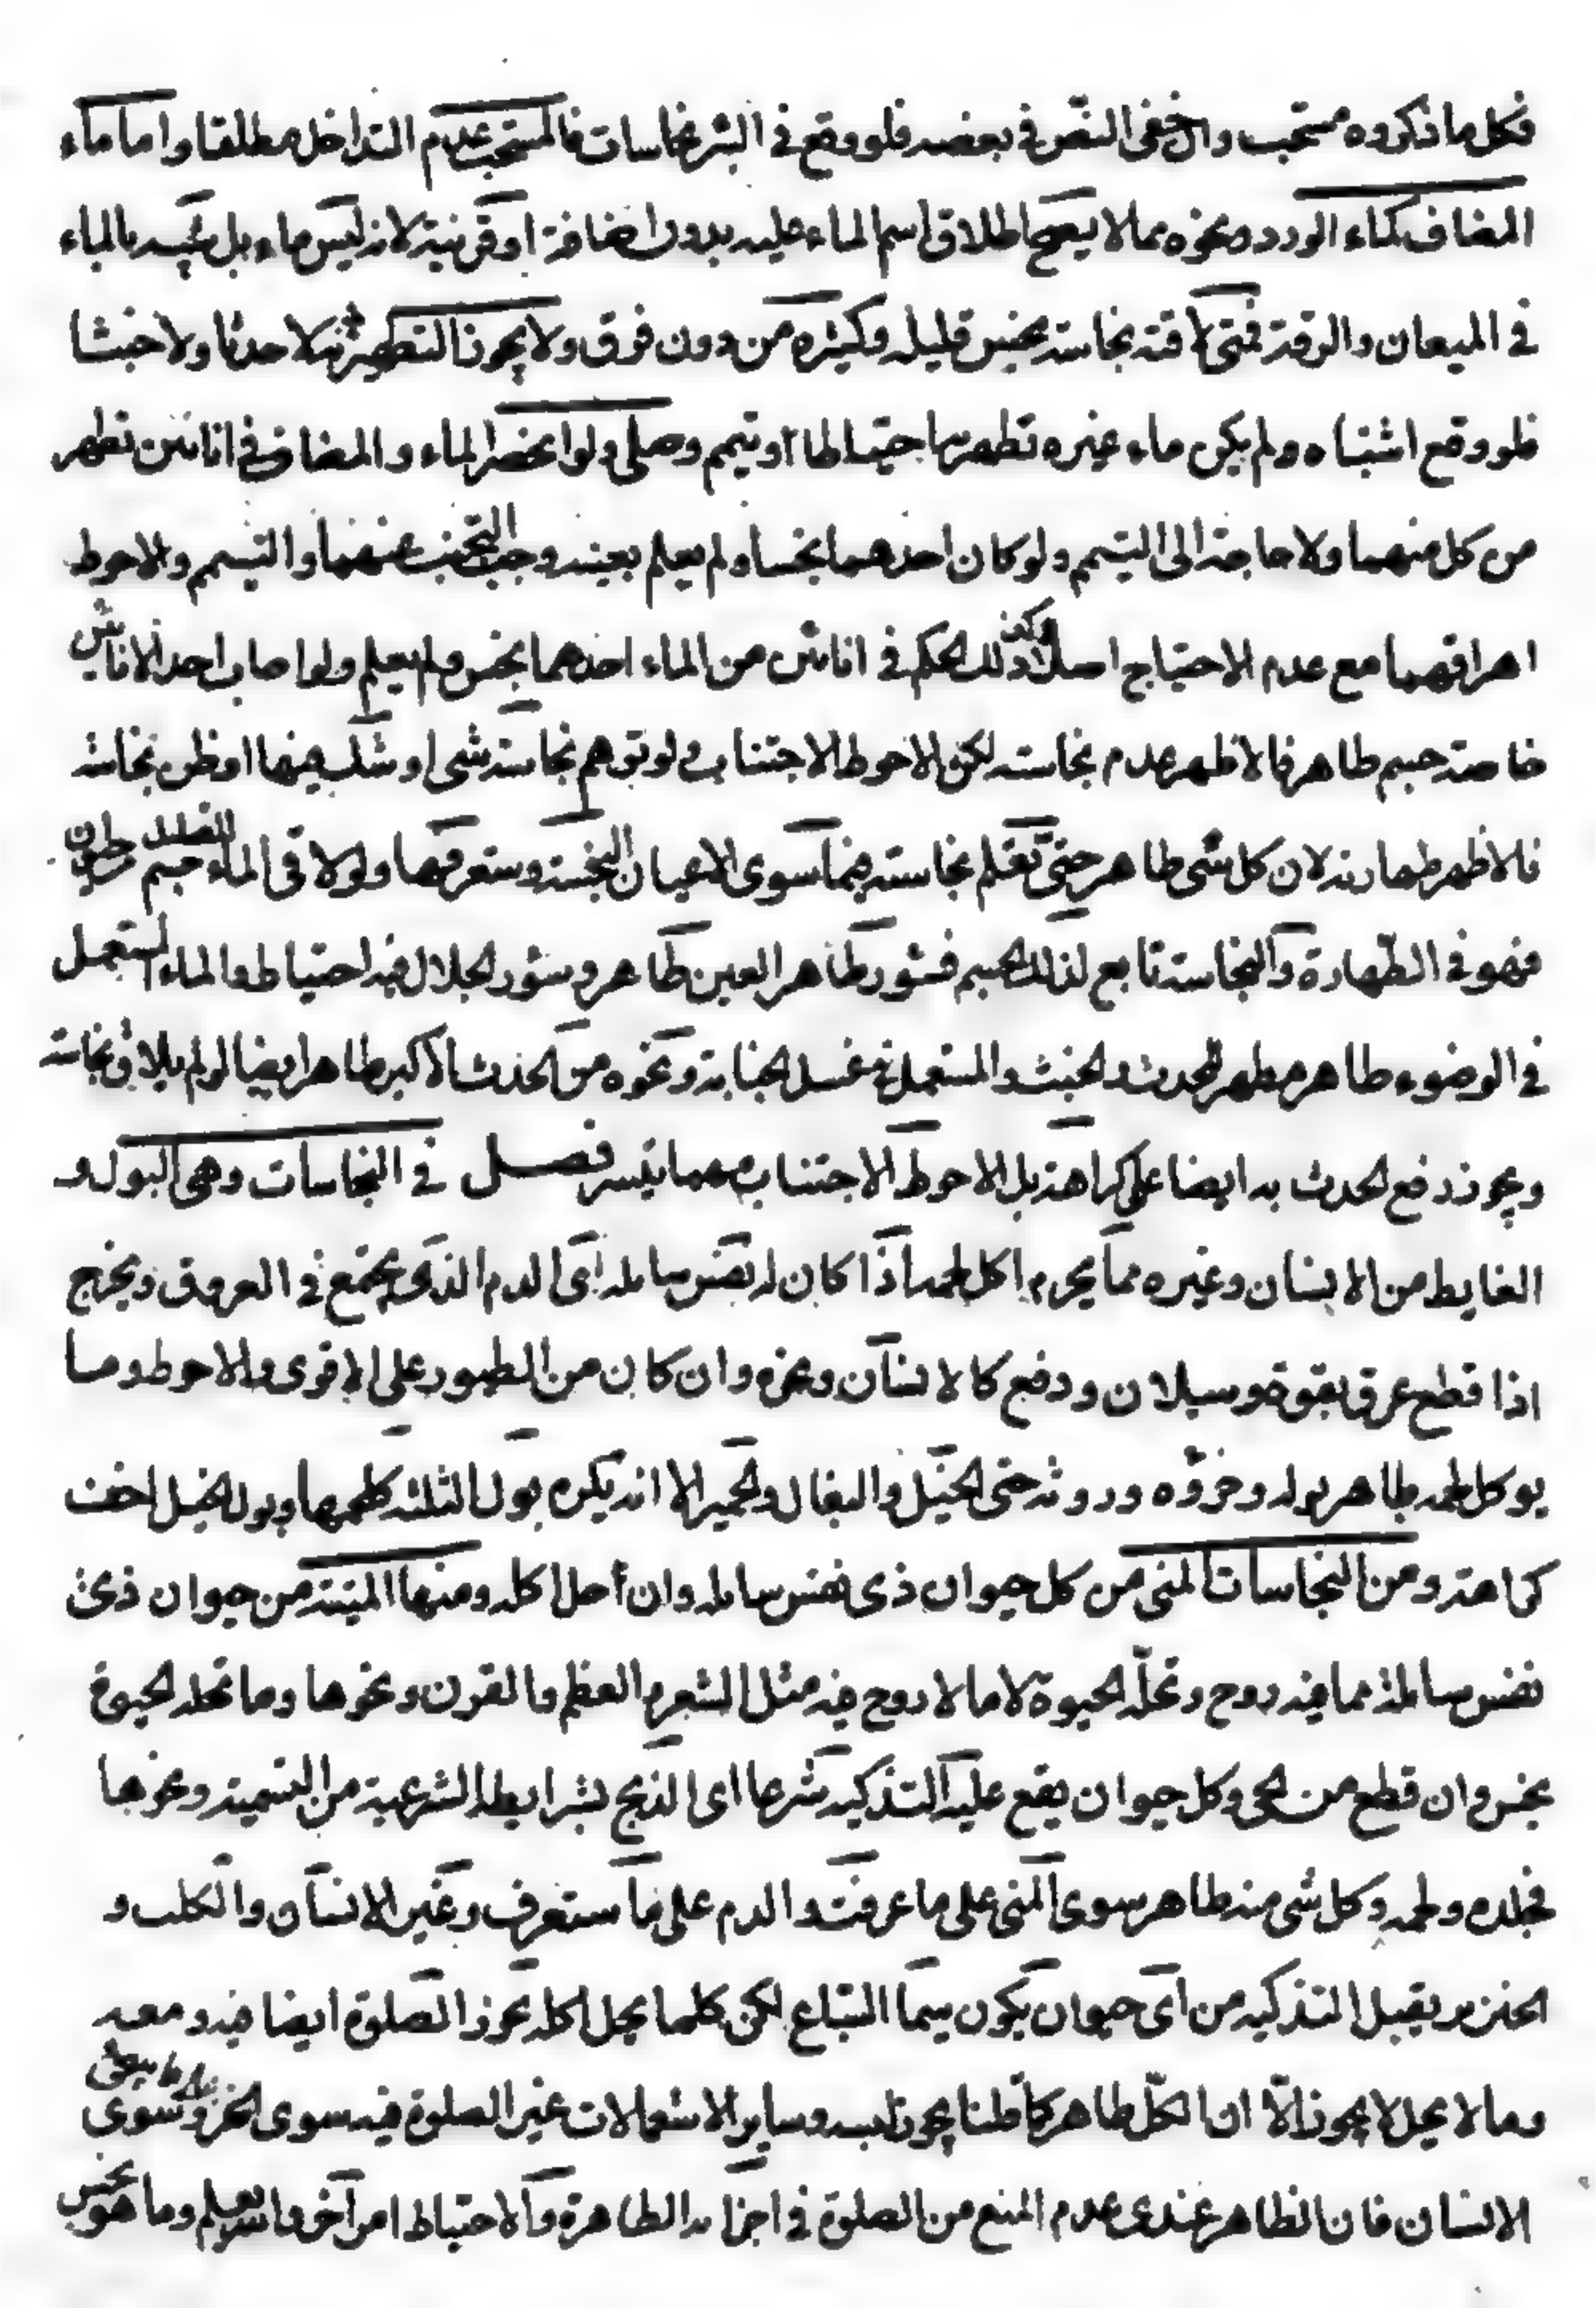 فكل ما ذكروه مستحب وان خفى النص فى بعضه فلو وقع فى البئر نجاسات فالمستحب عدم التداخل مطلقا واما ماء
المضاف كماء الورد ونحوه مما لا يصح اطلاق اسم الماء عليه بدون اضافة او قرنية لانه ليس ماء بل شبيه بالماء
فى الميعان والرقة فمتى لاقته نجاسة نجس قليله وكثيره من دون فرق ولا يجوز التطهير به لا حدثا ولا خبثا
فلو وقع اشتباه ولم يكن ماء غيره تطهر بها احتياطا او تيمم وصلى ولو انحصر الماء والمضاف فى انائين تطهر
من كل منهما ولا حاجة الى التيمم ولو كان احدهما نجسا ولم يعلم بعينه وجب التجنب عنهما والتيمم والاحوط
اهراقهما مع عدم الاحتياج اصلا وكذا ذلك الحكم فى انائين من الماء احدهما نجس ولم يعلم ولو اصاب احد الانائين
خاصة جسم طاهر فالاظهر عدم نجاسته لكن الاحوط الاجتناب ولو توهم نجاسة شى او شك فيها او ظن نجاسته
فالاظهر طهارته لان كل شى طاهر حتى تعلم نجاسته فيما سوى الاعيان النجسة وستعرفها ولو لاقى الماء القليل جسم حيوان
فهو فى الطهارة والنجاسة تابع لذلك الجسم فسؤر طاهر العين طاهر وسؤر الجلال فيه احتياط والماء المستعمل
فى الوضوء طاهر مطهر للحدث والخبث والمستعمل فى غسل الجنابة ونحوه من الحدث الاكبر طاهر ايضا لو لم يلاق نجاسة
ويجوز رفع الحدث به ايضا على كراهة بل الاحوط الاجتناب مهما تيسر فصل فى النجاسات وهى البول و
الغايط من الانسان وغيره مما يحرم اكل لحمه اذا كان له نفس سائلة اى الدم الذى يجتمع فى العروق ويخرج
اذا قطع عرق بقوة وسيلان ودفع كالانسان وغيره وان كان من الطيور على الاقوى والاحوط وما
يوكل لحمه طاهر بوله وخرؤه وروثه حتى الخيل والبغال والحمير الا انه يكره بول الثلثة كلحمها وبول الخيل اخف
كراهة ومن النجاسات المنى من كل حيوان ذى نفس سائلة وان أحل اكله ومنها الميتة من حيوان ذى
نفس سائلة مما فيه روح وتحله الحيوة لا ما لا روح فيه مثل الشعر والعظم والقرن ونحوها وما تحله الحيوة
نجس وان قطع من الحى وكل حيوان يقع عليه التذكية شرعا اى الذبح بشرايطه الشرعية من التسمية ونحوها
فجلده ولحمه وكل شى منه طاهر سوى المنى على ما عرفت والدم على ما ستعرف وغير الانسان والكلب و
الخنزير يقبل التذكية من اى حيوان يكون سيما السباع لكن كلما يحل اكله تجوز الصلوة ايضا فيه ومعه
وما لا يحل لا يجوز الا ان الكل طاهر كما قلنا يجوز لبسه وساير الاستعمالات غير الصلوة فيه سوى الخز وسوى
الانسان فان الظاهر عندى عدم المنع من الصلوة فى اجزائه الطاهرة والاحتياط امر آخر والله يعلم وما هو نجس